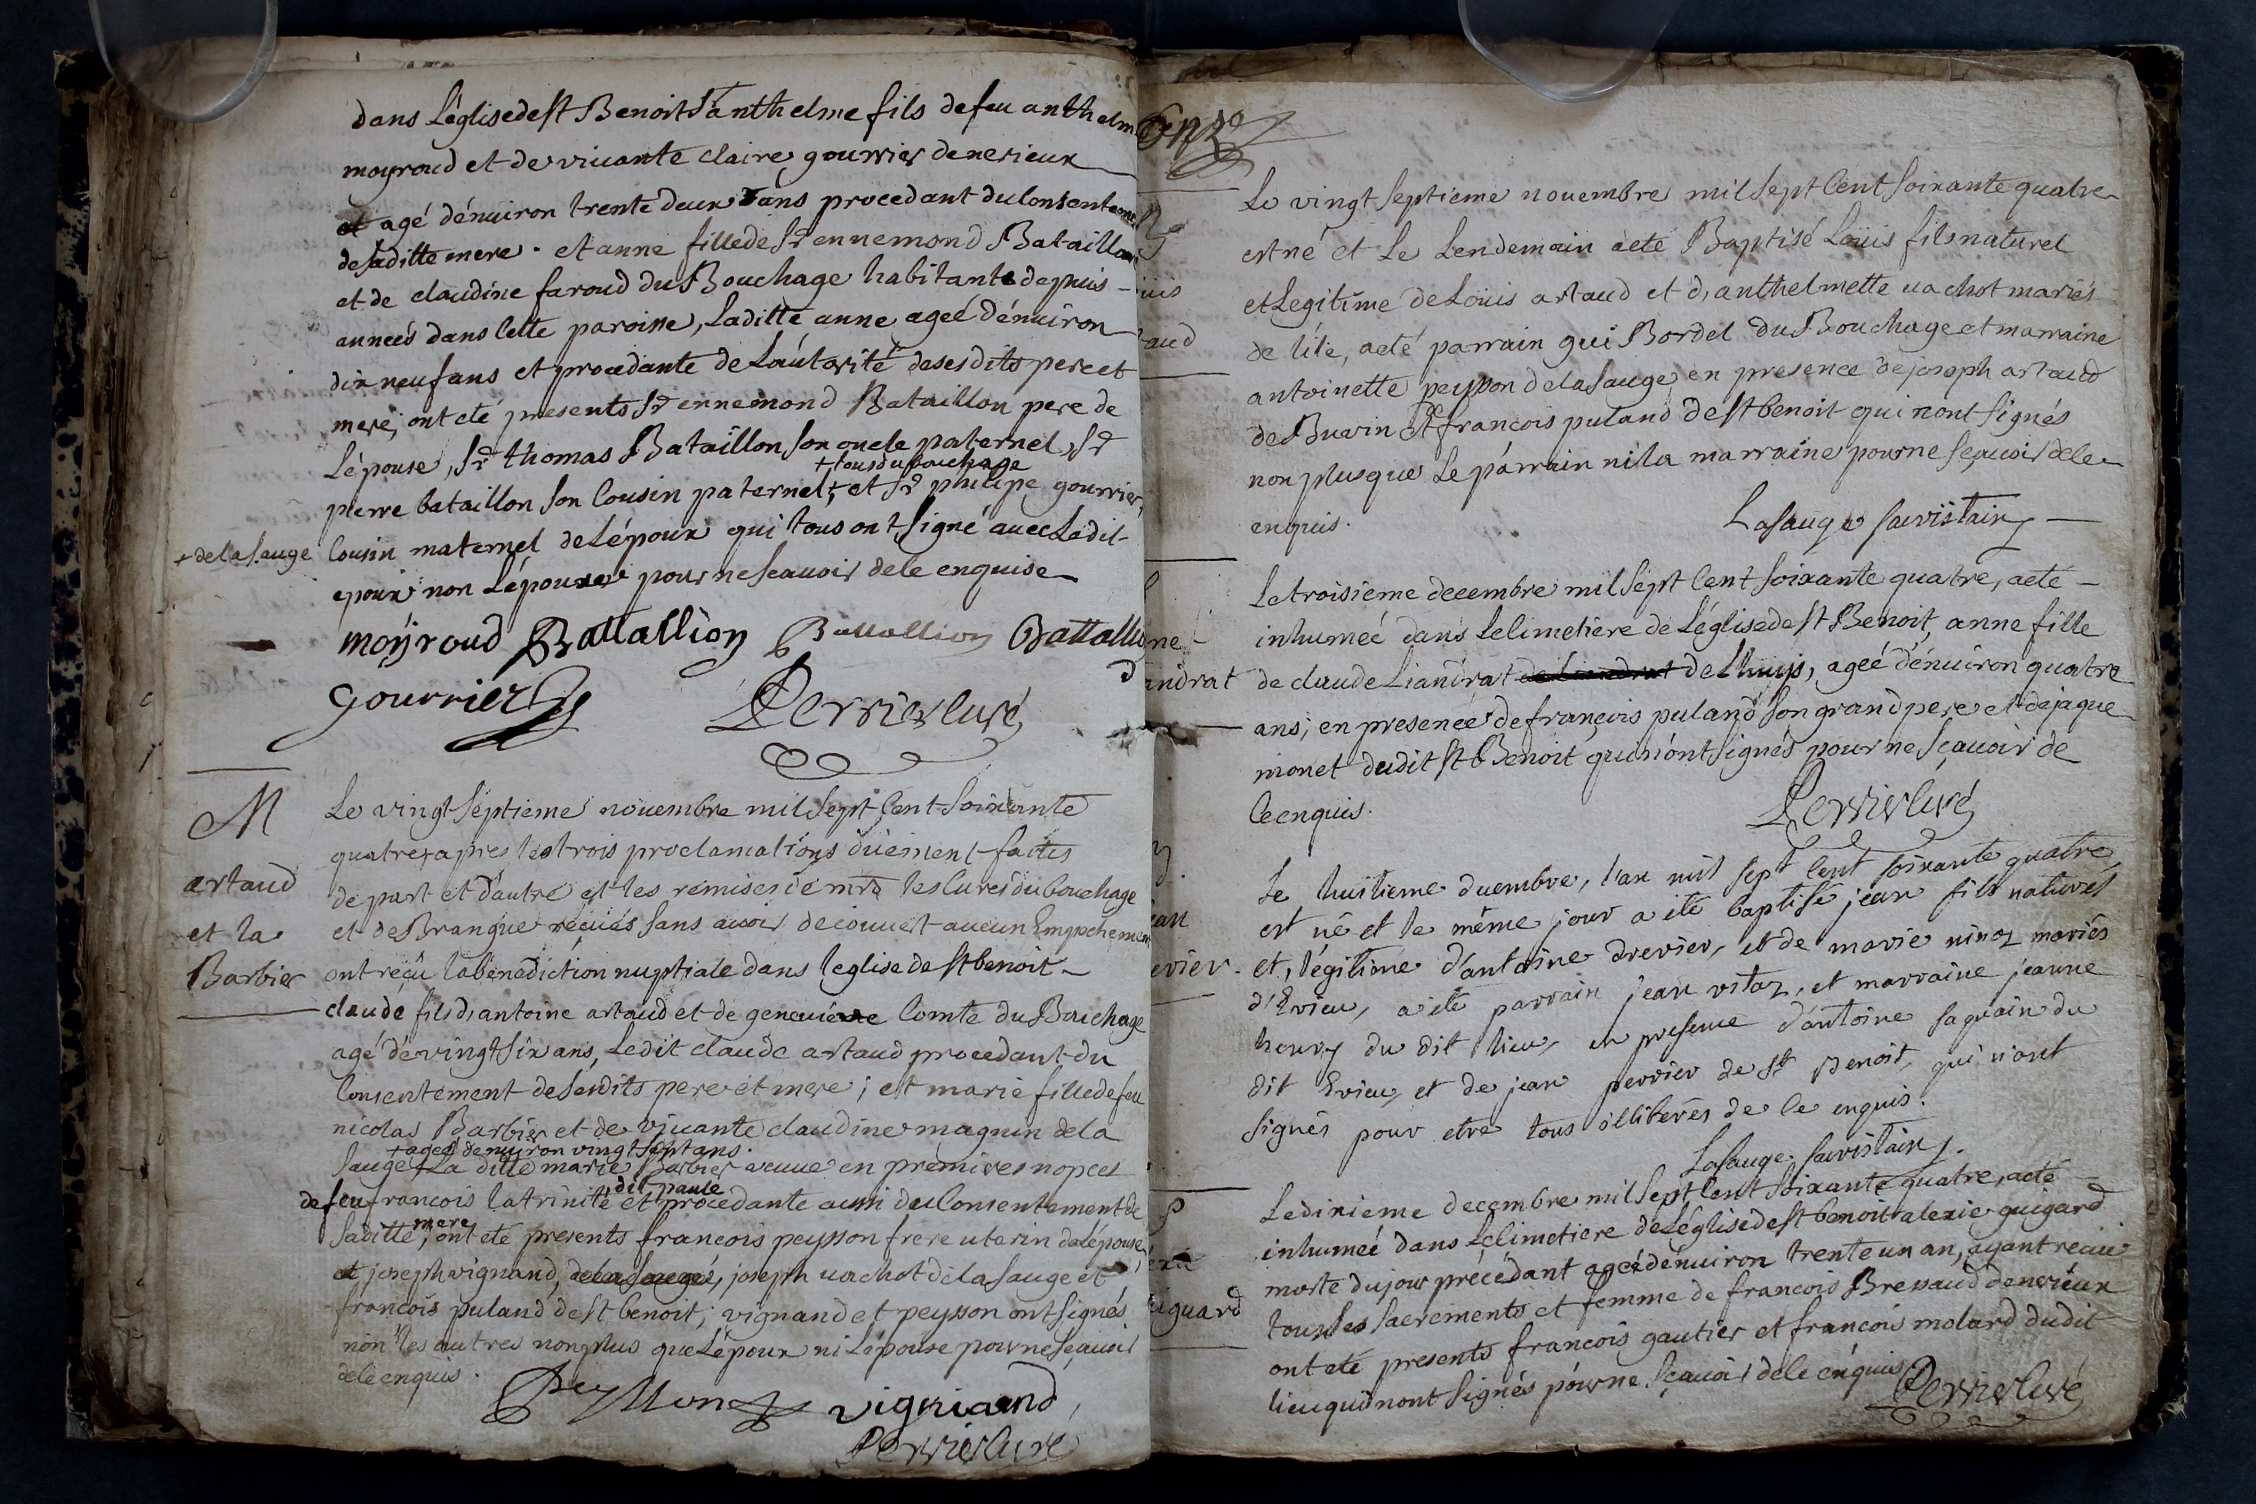 dans L'eglise de st Benoit Sr anthelme fils de feu anthelm
moyroud et de vivante claire gourrier de nerieux
et agé d'énuiron trente deux ans procedant du Consentem
de saditte mere. et anne fille de Sr ennemond Bataillon
et de claudine faroud du Bouchage habitante depuis
années dans cette paroisse, Laditte anne ageé d'énuiron
dix neuf ans et procedante de L'autorité de ses dits pere et
mere, ont eté presents Sr ennemond Bataillon pere de
L'épouse, Sr thomas Bataillon son oncle paternel, Sr
+ tous du bouchage
pierre bataillon son Cousin paternel, + et Sr philipe gourrier,
+ de la sauge
Cousin maternel de L'époux qui tous ont signé avec Ledit
epoux non L'épouse pour ne scauoir de le enquise
moÿroud Battallion Battallion Battallio
gourrier Perrier Curé
M
artaud
et la
Barbier
Le vingt septieme nouembre mil sept Cent soixante
quatre, apres les trois proclamations düement faites
de part et d'autre et les remises de mrs les Curés du bouchage
et de Brangue reçües sans auoir decouuert aucun Empechemen
ont reçu la bénediction nuptiale dans l'eglise de st benoit
claude fils d'antoine artaud et de geneuieve Comte du Bouchage
agé de vingt six ans, Ledit claude artaud procedant du
Consentement de sesdits pere et mere; et marie fille de feu
nicolas Barbier et de vivante claudine magnin de la
+ ageé d'enuiron vingt sept ans.
sauge + La ditte marie Barbier veuue en premires nopces
dit paule
de feu francois la trinité et procedante aussi du Consentement de
mere
saditte, ont eté presents francois peysson frere uterin de L'épouse,
et joseph vignand, de la sauge, joseph vachot de la sauge et
francois puland de st benoit; vignand et peysson ont signés
non les autres non plus que L'époux ni L'épouse pour ne scauoir
de le enquis.
Peysson vigniand,
Perrier Curé
uis
aud
Le vingt septieme nouembre mil sept Cent soixante quatre
est né et le Lendemain a eté Baptisé Loüis fils naturel
et Legitime de Loüis artaud et d'anthelmette vachot mariés
de l'ile, a eté parrain gui Bordel du Bouchage et marraine
antoinette peysson de la sauge, en presence de joseph artaud
de Buvin et francois puland de st benoit qui n'ont signés
non plus que Le parrain ni la marraine pour ne sçauoir de le
enquis.
Lasauge sacristain
ne
andrat
Le troisieme decembre mil sept Cent soixante quatre, a eté
inhumeé dans Le Cimetiere de L'église de st Benoit, anne fille
de claude Liandrat de Lhuys, ageé d'énuiron quatre
ans; en presence de françois puland son grand pere et de jaque
monet dudit st Benoit qui n'ont signés pour ne sçauoir de
Ce enquis.
Perrier Curé
ean
evier
Le huitieme decembre, l'an mil sept Cent soixante quatre
est né et le même jour a eté baptisé jean fils naturel
et, légitime d'antoine drevier, et de marie ninoz mariés
d'Evieu, a eté parrain jean vitoz, et marraine jeanne
henry du dit lieu, en presence d'antoine saquain du
dit Evieu, et de jean perrier de st Benoit, qui n'ont
signés pour etre tous illiterés de ce enquis.
Lasauge sacristain
Le dixieme decembre mil sept Cent soixante quatre, a eté
inhumeé dans Le Cimetiere de L'église de st benoit alexie guigard
morte du jour précedant ageé d'énuiron trente un an, ayant reçu
tous les sacrements et femme de francois Bressaud de nerieux
iguard
ont eté presents francois gautier et francois molard dudit
lieu qui n'ont signés pour ne sçauoir de le enquis
Perrier Curé